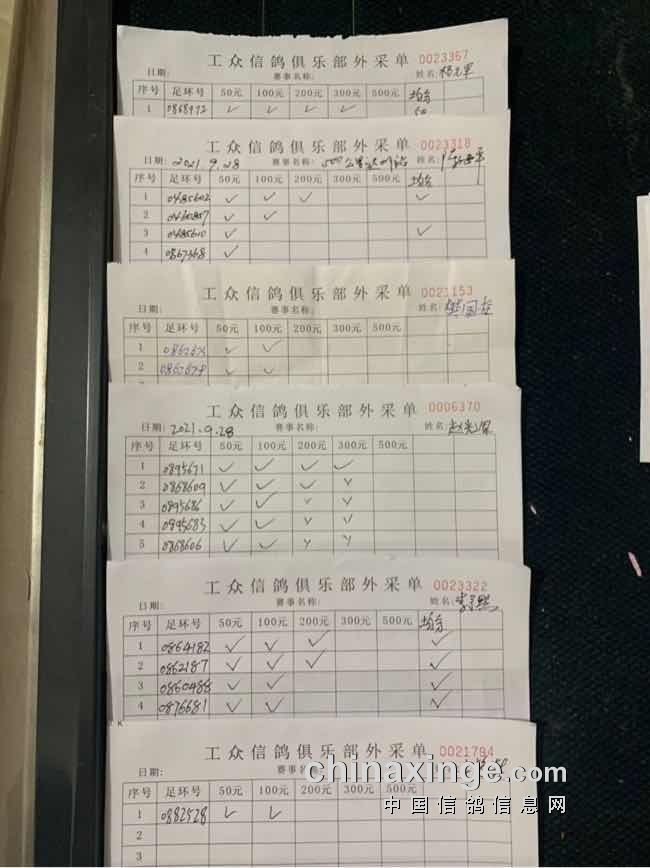 工众信鸽俱乐部外采单 0023367
日期: 赛事名称: 姓名:
序号 足环号 50元 100元 200元 300元 500元 均分
1 0868972 ✓ ✓ ✓ ✓ 50
工众信鸽俱乐部外采单 0023318
日期: 2021.9.28 赛事名称: 500公里 姓名:
序号 足环号 50元 100元 200元 300元 500元 均分
1 0485602 ✓ ✓ ✓ ✓
2 ✓ ✓
3 0485610 ✓ ✓
4 0867368 ✓
工众信鸽俱乐部外采单 0021153
日期: 赛事名称: 姓名:
序号 足环号 50元 100元 200元 300元 500元
1 ✓ ✓
2 0867678 ✓ ✓
工众信鸽俱乐部外采单 0006370
日期: 2021.9.28 赛事名称: 姓名:
序号 足环号 50元 100元 200元 300元 500元
1 0895671 ✓ ✓ ✓ ✓
2 0868609 ✓ ✓ ✓ ✓
3 0895686 ✓ ✓ ✓ ✓
4 0895683 ✓ ✓ ✓ ✓
5 0868606 ✓ ✓ ✓ ✓
工众信鸽俱乐部外采单 0023322
日期: 赛事名称: 姓名:
序号 足环号 50元 100元 200元 300元 500元 均分
1 0864182 ✓ ✓ ✓ ✓
2 0862187 ✓ ✓ ✓ ✓
3 0860488 ✓ ✓ ✓
4 0876681 ✓ ✓ ✓
工众信鸽俱乐部外采单 0021794
日期: 赛事名
chinaxinge.com
序号 足环号 50元 100元 200元 300元 500元
中国信鸽信息网
1 0882528 ✓ ✓
2
3